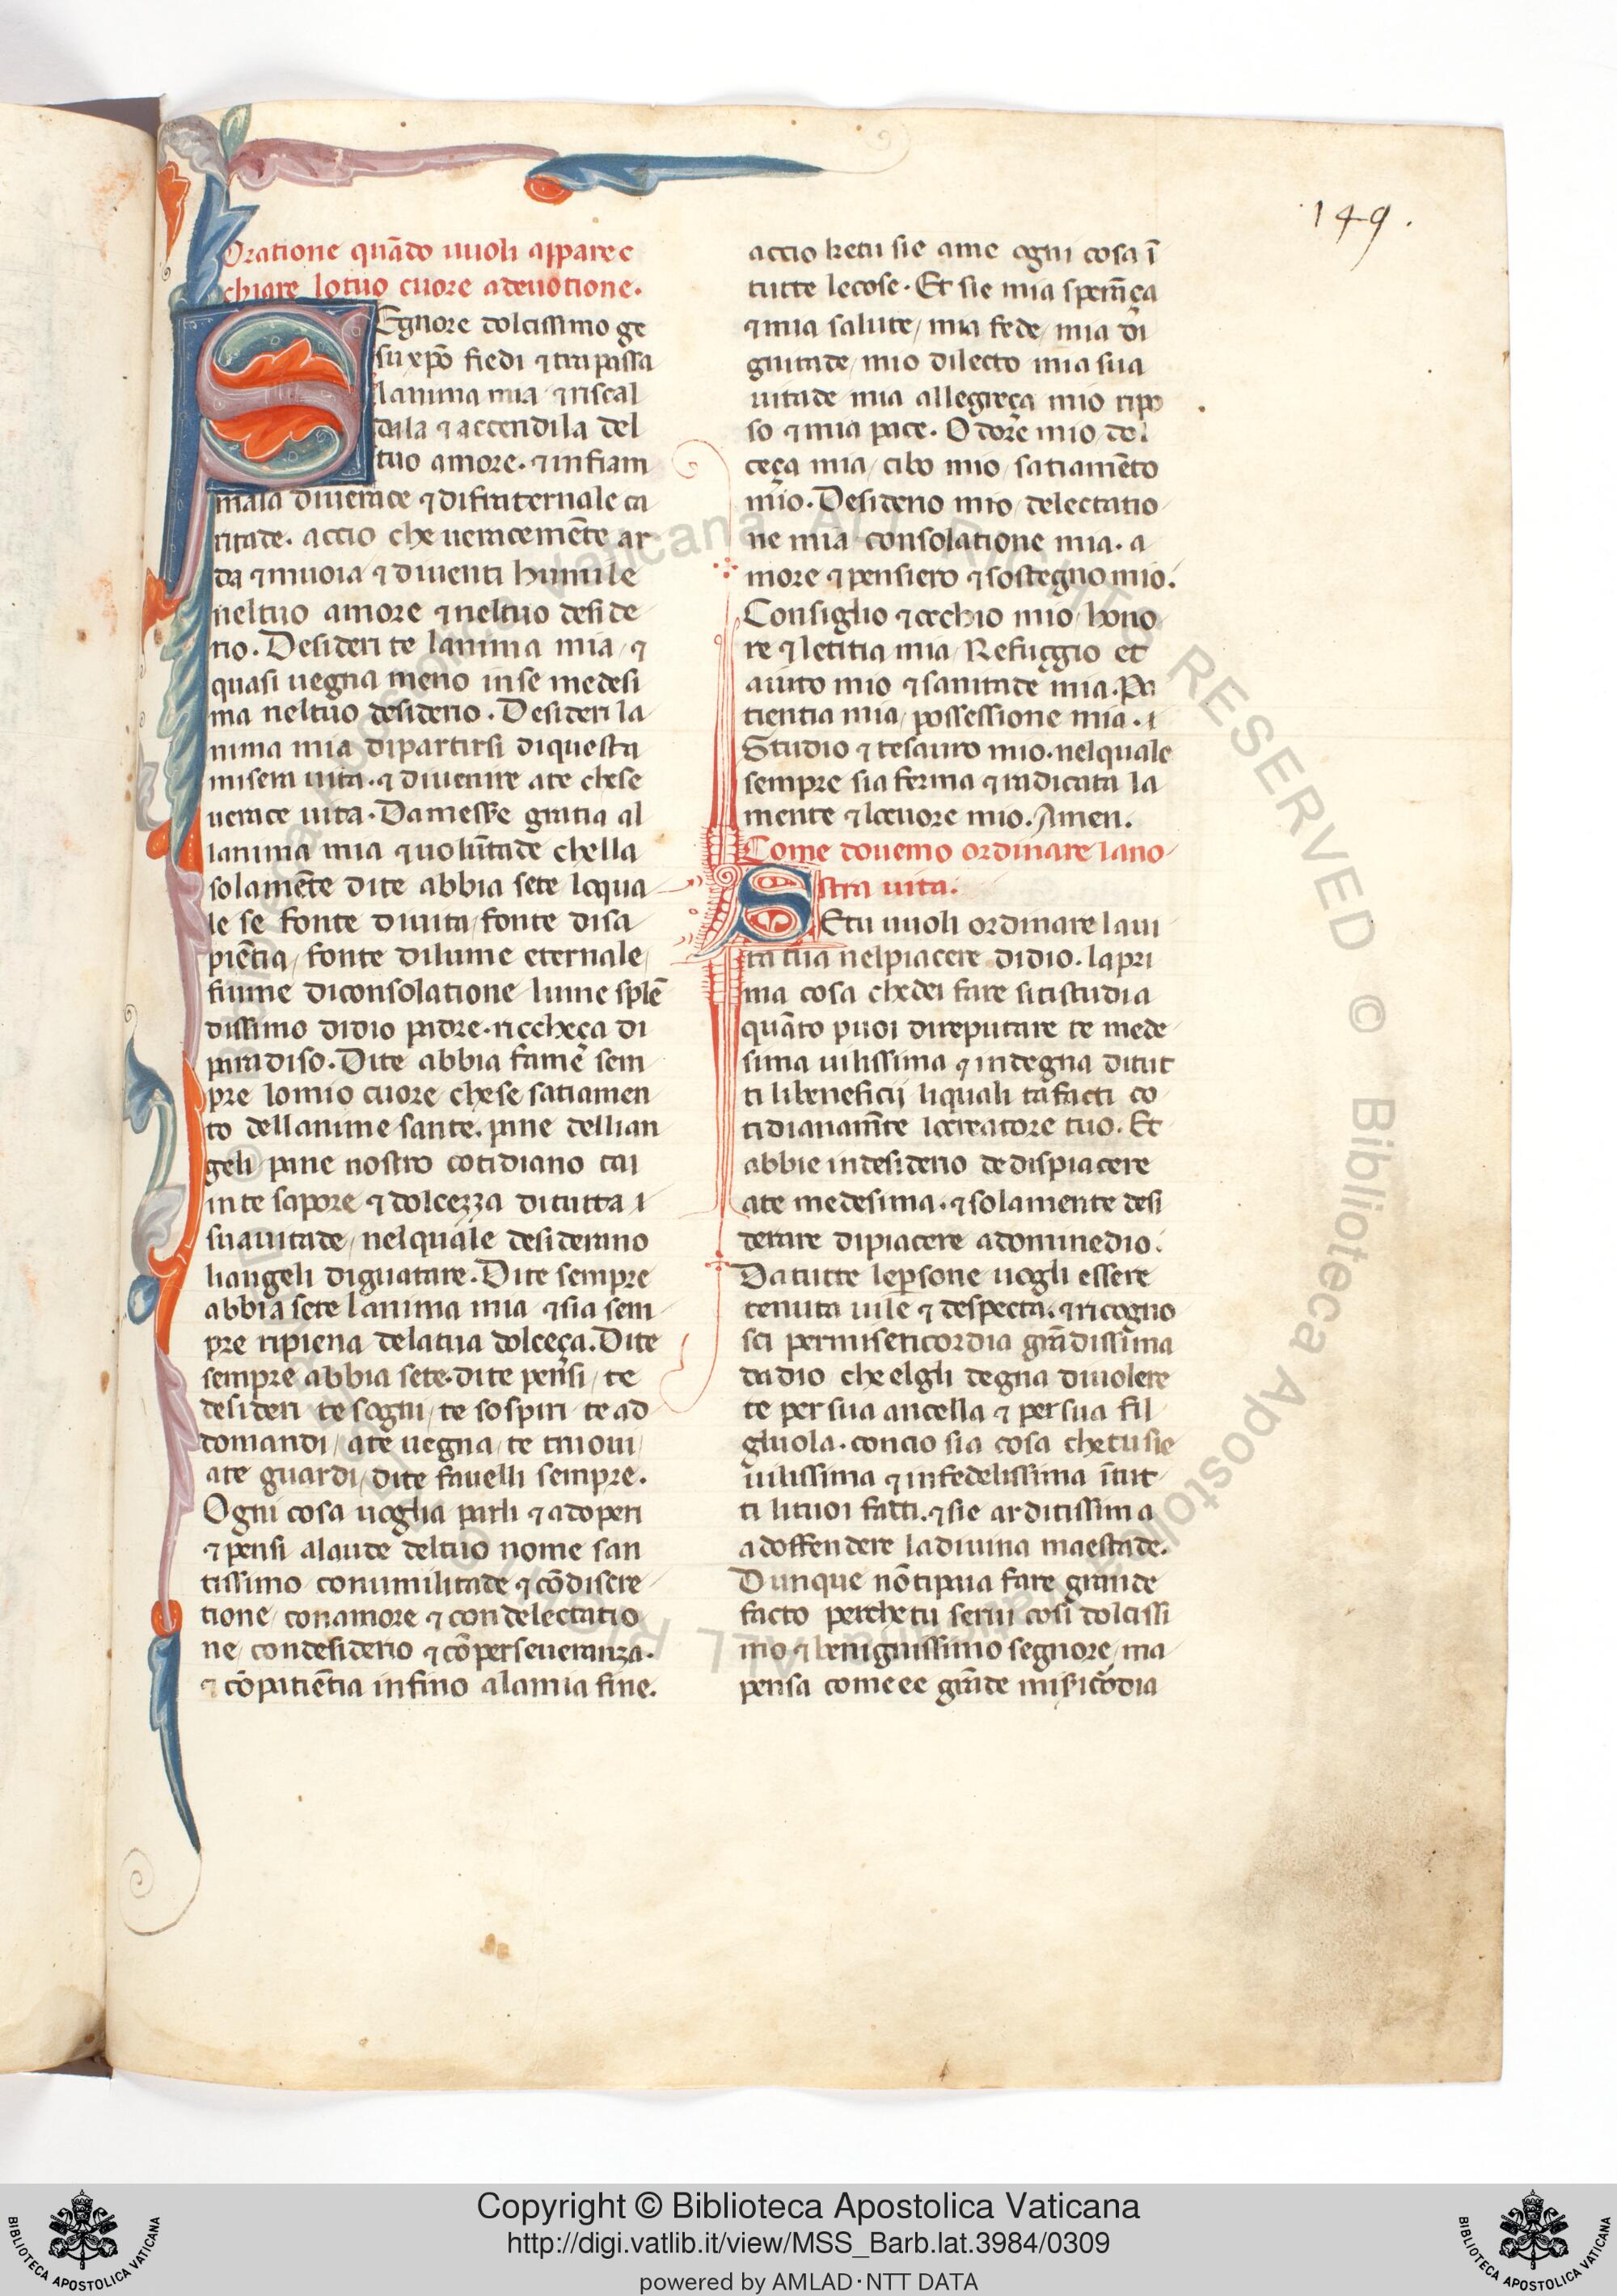 149.
Oratione quādo uuoli apparec
chiare lo tuo cuore a deuotione.
SEgnore dolcissimo ge
su xp̄o fiedi ⁊ trapassa
lanima mia ⁊ riscal
dala ⁊ accendila del
tuo amore. ⁊ infiam
mala diuerace ⁊ difraternale ca
ritade. accio che ueracemēte ar
da ⁊ muoia ⁊ diuenti humile
neltuo amore ⁊ neltuo deside
rio. Desideri te lanima mia, ⁊
quasi uegna meno inse medesi
ma neltuo desiderio. Desideri la
nima mia dipartirsi diquesta
misera uita. ⁊ diuenire ate chese
uerace uita. Damesire gratia al
lanima mia ⁊ uolūtade chella
solamēte dite abbia sete loqua
le se fonte diuita, fonte disa
piētia, fonte dilume eternale,
fiume diconsolatione lume splē
dissimo didio padre. riccheça di
paradiso. Dite abbia fame sem
pre lomio cuore chese satiamen
to dellanime sante. pane dellian
geli pane nostro cotidiano cai
inte sapore ⁊ dolcezza ditutta
suauitade, nelquale desiderano
liangeli diguatare. Dite sempre
abbia sete lanima mia ⁊ sia sem
pre ripiena delatua dolceça. Dite
sempre abbia sete. dite pensi, te
desideri te sogni, te sospiri te ad
domandi, ate uegna, te truoui,
ate guardi, dite fauelli sempre.
Ogni cosa uoglia parli ⁊ adoperi
⁊ pensi alaude deltuo nome san
tissimo conumilitade ⁊ cōdiscre
tione, conamore ⁊ condelectatio
ne, condesiderio ⁊ cōperseueranza.
⁊ cōpatiētia infino alamia fine.
accio ketu sie ame ogni cosa ī
tutte lecose. Et sie mia sperāça
⁊ mia salute, mia fede, mia di
gnitade, mio dilecto mia sua
uitade mia allegreça mio ripo
so ⁊ mia pace. Odore mio, dol
ceça mia, cibo mio, satiamēto
mio. Desiderio mio, delectatio
ne mia consolatione mia. a
more ⁊ pensiero ⁊ sostegno mio.
Consiglio ⁊ occhio mio, hono
re ⁊ letitia mia, Refuggio et
aiuto mio ⁊ sanitade mia. Pa
tientia mia, possessione mia.
Studio ⁊ tesauro mio. nelquale
sempre sia ferma ⁊ radicata la
mente ⁊ locuore mio. Amen.
Come douemo ordinare lano
stra uita.
SEtu uuoli ordinare laui
ta tua nelpiacere didio. lapri
ma cosa chedei fare sitistudia
quāto puoi direputare te mede
sima uilissima ⁊ indegna ditut
ti libeneficij liquali tafacti co
tidianamēte locreatore tuo. Et
abbie indesiderio dedispiacere
ate medesima. ⁊ solamente desi
derare dipiacere adominedio.
Datutte lepersone uogli essere
tenuta uile ⁊ despecta. ⁊ ricogno
sci permisericordia grādissima
dadio che elgli degna diuolere
te per sua ancella ⁊ persua fil
gluola. concio sia cosa chetu sie
uilissima ⁊ infedelissima ītut
ti lituoi facti. ⁊ sie arditissima
adoffendere ladiuina maestade.
Dunque nōtipaia fare grande
facto perchetu serui cosi dolcissi
mo ⁊ benignissimo segnore, ma
pensa comeee grāde misicordia
Copyright © Biblioteca Apostolica Vaticana
http://digi.vatlib.it/view/MSS_Barb.lat.3984/0309
powered by AMLAD·NTT DATA
BIBLIOTECA APOSTOLICA VATICANA
BIBLIOTECA APOSTOLICA VATICANA